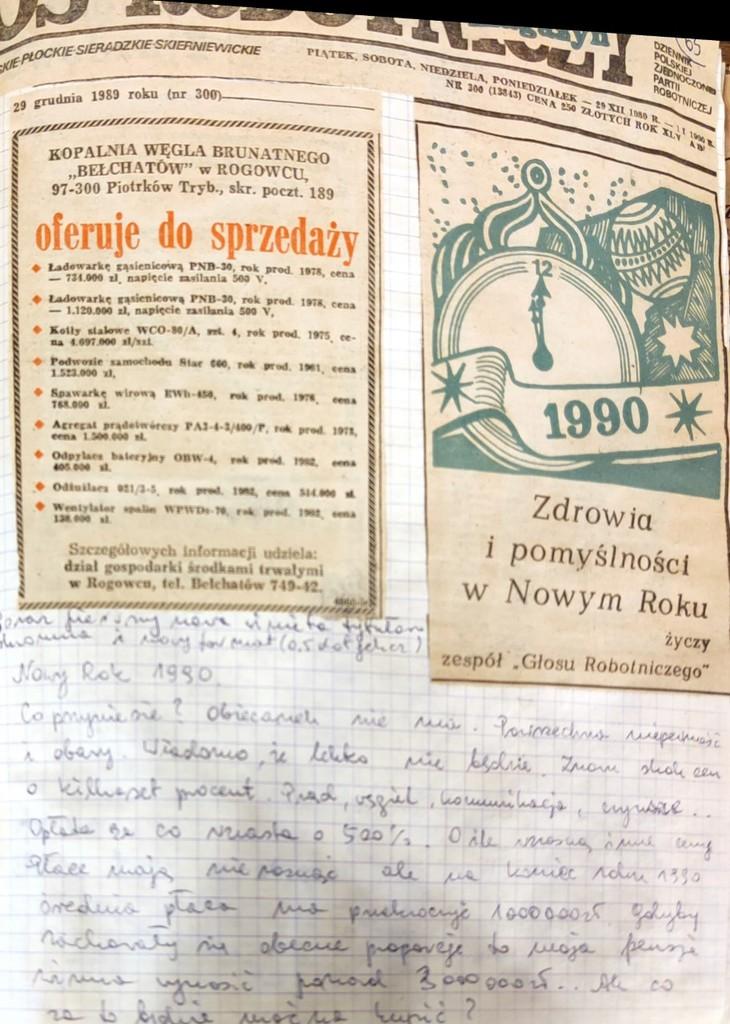 OS ROBOTNICZY
SKIE-PŁOCKIE-SIERADZKIE-SKIERNIEWICKIE
PIĄTEK, SOBOTA, NIEDZIELA, PONIEDZIAŁEK — 29 XII 1989 R. — 1 I 1990 R.
NR 300 (13843) CENA 250 ZŁOTYCH ROK XLV
DZIENNIK
POLSKIEJ
ZJEDNOCZONEJ
PARTII
ROBOTNICZEJ
65
29 grudnia 1989 roku (nr 300)
KOPALNIA WĘGLA BRUNATNEGO
„BEŁCHATÓW" w ROGOWCU,
97-300 Piotrków Tryb., skr. poczt. 189
oferuje do sprzedaży
Ładowarkę gąsienicową PNB-30, rok prod. 1978, cena
— 734.000 zł, napięcie zasilania 500 V,
Ładowarkę gąsienicową PNB-30, rok prod. 1978, cena
— 1.120.000 zł, napięcie zasilania 500 V,
Kotły stalowe WCO-80/A, szt. 4, rok prod. 1975, ce-
na 4.697.000 zł/szt.
Podwozie samochodu Star 660, rok prod. 1961, cena
1.523.000 zł,
Spawarkę wirową EWh-450, rok prod. 1976, cena
768.000 zł.
Agregat prądotwórczy rok prod. 1978,
cena 1.500.000 zł.
Odpylacz bateryjny OBW-4, rok prod. 1982, cena
405.000 zł.
Odtłuszcz rok prod. 1982, cena 514.000 zł.
Wentylator spalin WPWDs-70, rok prod. 1982, cena
138.000 zł.
Szczegółowych informacji udziela:
dział gospodarki środkami trwałymi
w Rogowcu, tel. Bełchatów 749-42.
12
1990
Zdrowia
i pomyślności
w Nowym Roku
życzy
zespół „Głosu Robotniczego"
nowa winieta tytułowa
i nowy format
Nowy Rok 1990.
Co przyniesie? Obiecanek nie ma. Powszechna niepewność
i obawy. Wiadomo, że lekko nie będzie. Znowu skok cen
o kilkaset procent. Prąd, węgiel, komunikacja, czynsze..
Opłata za co wzrasta o 500%. O ile wzrosną inne ceny
Płace mają nie rosnąć ale na koniec roku 1990
średnia płaca ma przekroczyć 1000000zł. Gdyby
zachowały się obecne proporcje to moja pensja
winna wynosić ponad 3000000zł... Ale co
za to będzie można kupić?